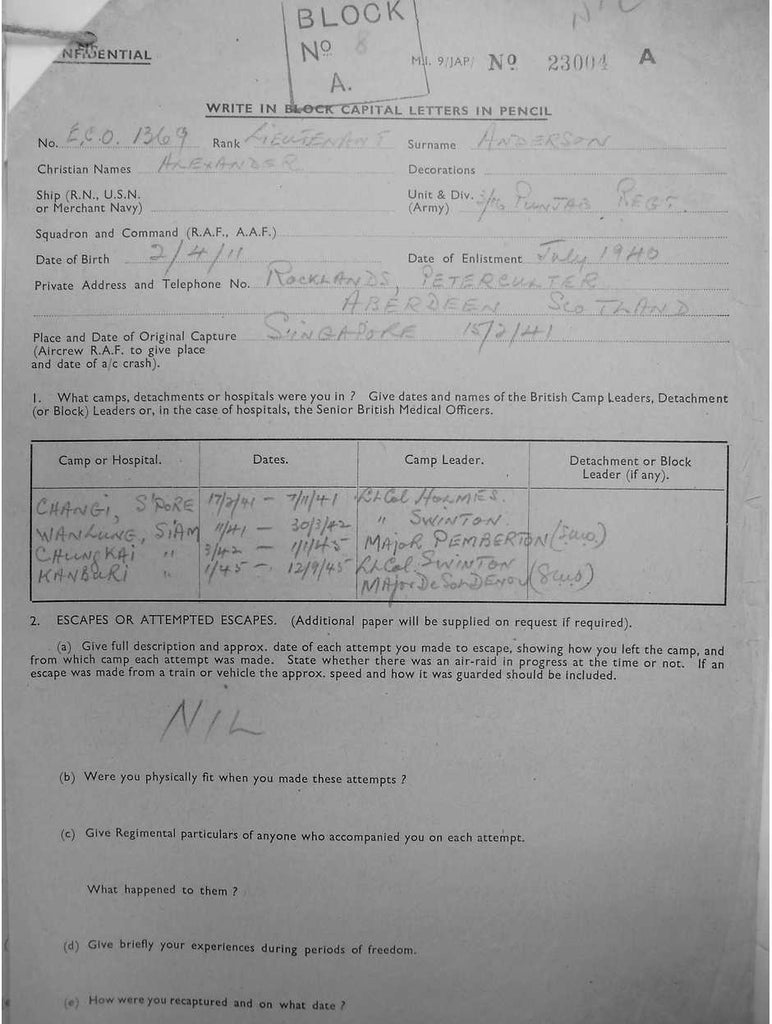 BLOCK
Nº 8
A.
NIL
NFIDENTIAL
M.I. 9/JAP/ Nº 23004 A
WRITE IN BLOCK CAPITAL LETTERS IN PENCIL
No. E.C.O. 1369 Rank LIEUTENANT Surname ANDERSON
Christian Names ALEXANDER Decorations
Ship (R.N., U.S.N.
or Merchant Navy)
Unit & Div. PUNJAB REGT.
(Army)
Squadron and Command (R.A.F., A.A.F.)
Date of Birth 2/4/11 Date of Enlistment July 1940
Private Address and Telephone No. ROCKLANDS, PETERCULTER
ABERDEEN SCOTLAND
Place and Date of Original Capture SINGAPORE 15/2/41
(Aircrew R.A.F. to give place
and date of a/c crash).
1. What camps, detachments or hospitals were you in ? Give dates and names of the British Camp Leaders, Detachment
(or Block) Leaders or, in the case of hospitals, the Senior British Medical Officers.
Camp or Hospital. Dates. Camp Leader. Detachment or Block
Leader (if any).
CHANGI, S'PORE 17/2/41 - 7/11/41 Lt Col HOLMES.
WANLUNG, SIAM 11/41 - 30/3/42 " SWINTON.
CHUNGKAI " 3/42 - 1/1/45 MAJOR PEMBERTON
KANBURI " 1/45 - 12/9/45 Lt Col. SWINTON
MAJOR
2. ESCAPES OR ATTEMPTED ESCAPES. (Additional paper will be supplied on request if required).
(a) Give full description and approx. date of each attempt you made to escape, showing how you left the camp, and
from which camp each attempt was made. State whether there was an air-raid in progress at the time or not. If an
escape was made from a train or vehicle the approx. speed and how it was guarded should be included.
NIL
(b) Were you physically fit when you made these attempts ?
(c) Give Regimental particulars of anyone who accompanied you on each attempt.
What happened to them ?
(d) Give briefly your experiences during periods of freedom.
(e) How were you recaptured and on what date ?